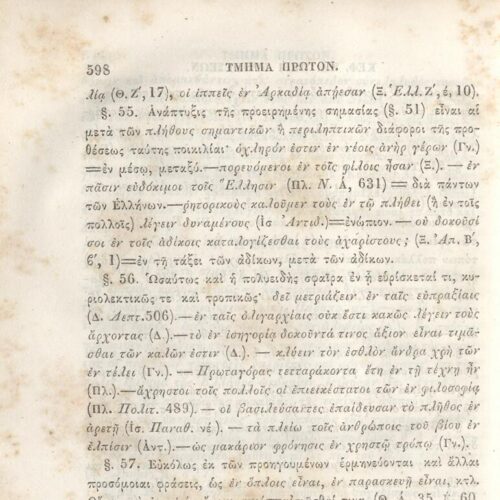 598 ΤΜΗΜΑ ΠΡΩΤΟΝ.
λίᾳ (Θ. Ζ′, 17), οἱ ἱππεῖς ἐν Ἀρκαδίᾳ ἀπῄεσαν (Ξ. Ἑλλ. Ζ′, έ, 10).
§. 55. Ἀνάπτυξις τῆς προειρημένης σημασίας (§. 51) εἶναι αἱ
μετὰ τῶν πλήθους σημαντικῶν ἢ περιληπτικῶν διάφοροι τῆς προ-
θέσεως ταύτης ποικιλίαι· ὀχληρόν ἐστιν ἐν νέοις ἀνὴρ γέρων (Γν.)
=ἐν μέσω, μεταξύ.—πορευόμενοι ἐν τοῖς φίλοις ἦσαν (Ξ.).—ἐν
πᾶσιν εὐδόκιμοι τοῖς Ἕλλησιν (Πλ. Ν. Α, 631)=διὰ πάντων
τῶν Ἑλλήνων.—ῥητορικοὺς καλοῦμεν τοὺς ἐν τῷ πλήθει (ἢ ἐν τοῖς
πολλοῖς) λέγειν δυναμένους (Ἰσ Ἀντιδ.)=ἐνώπιον.—οὐ δοκοῦσί
σοι ἐν τοῖς ἀδίκοις καταλογίζεσθαι τοὺς ἀχαρίστους; (Ξ. Ἀπ. Β′,
6′, 1)=ἐν τῇ τάξει τῶν ἀδίκων, μετὰ τῶν ἀδίκων.
§. 56. Ὡσαύτως καὶ ἡ πολυειδὴς σφαῖρα ἐν ᾗ εὑρίσκεταί τι, κυ-
ριολεκτικῶς τε καὶ τροπικῶς· δεῖ μετριάζειν ἐν ταῖς εὐπραξίαις
(Δ. Λεπτ. 506).—ἐν ταῖς ὀλιγαρχίαις οὐκ ἔστι κακῶς λέγειν τοὺς
ἄρχοντας (Δ.).—τὸ ἐν ἰσηγορίᾳ δοκοῦντά τινος ἄξιον εἶναι τιμᾶ-
σθαι τῶν καλῶν ἐστιν (Δ.).—κλύειν τὸν ἐσθλὸν ἄνδρα χρὴ τῶν
ἐν τέλει (Γν.).—Πρωταγόρας τετταράκοντα ἔτη ἐν τῇ τέχνῃ ἦν
(Πλ.).—ἄχρηστοι τοῖς πολλοῖς οἱ ἐπιεικέστατοι τῶν ἐν φιλοσοφίᾳ
(Πλ. Πολιτ. 489).—οἱ βασιλεύσαντες ἐπαίδευσαν τὸ πλῆθος ἐν
ἀρετῇ (Ἰσ. Παναθ. νέ).—τὰ πλείω τοῖς ἀνθρώποις τοῦ βίου ἐν
ἐλπίσιν (Ἀντ.).—ὡς μακάριον φρόνησις ἐν χρηστῷ τρόπῳ (Γν.).
§. 57. Εὐκόλως ἐκ τῶν προηγουμένων ἑρμηνεύονται καὶ ἄλλαι
προσόμοιαι φράσεις, ὡς ἐν ὅπλοις εἶναι, ἐν παρασκευῇ εἶναι, κτλ.